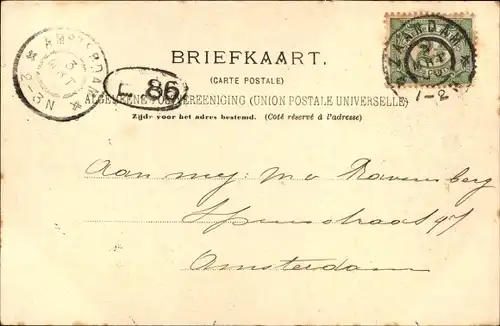 BRIEFKAART.
(CARTE POSTALE)
ALGEMEENE POSTVEREENIGING (UNION POSTALE UNIVERSELLE)
Zijde voor het adres bestemd. (Côté réservé à l'adresse)
AMSTERDAM
3 MRT
2-5 N
L. 86
ZAANDAM
2 MRT
1-2
Aan mej: M v Ravensberg
97
Amsterdam